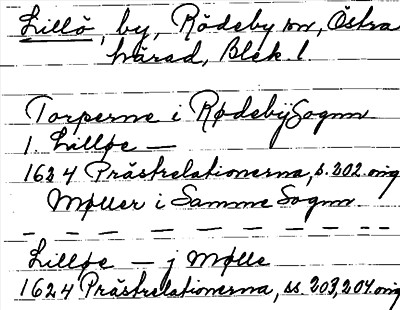 Lillö, by, Rödeby sn, Östra
härad, Blek. l.
Torperne i Rødebÿ Sognn
1 Lilløe —
1624 Prästrelationerna, s. 202 orig
Møller i Samme Sognn
Lilløe — j Mølle
1624 Prästrelationerna, ss. 203, 204 orig